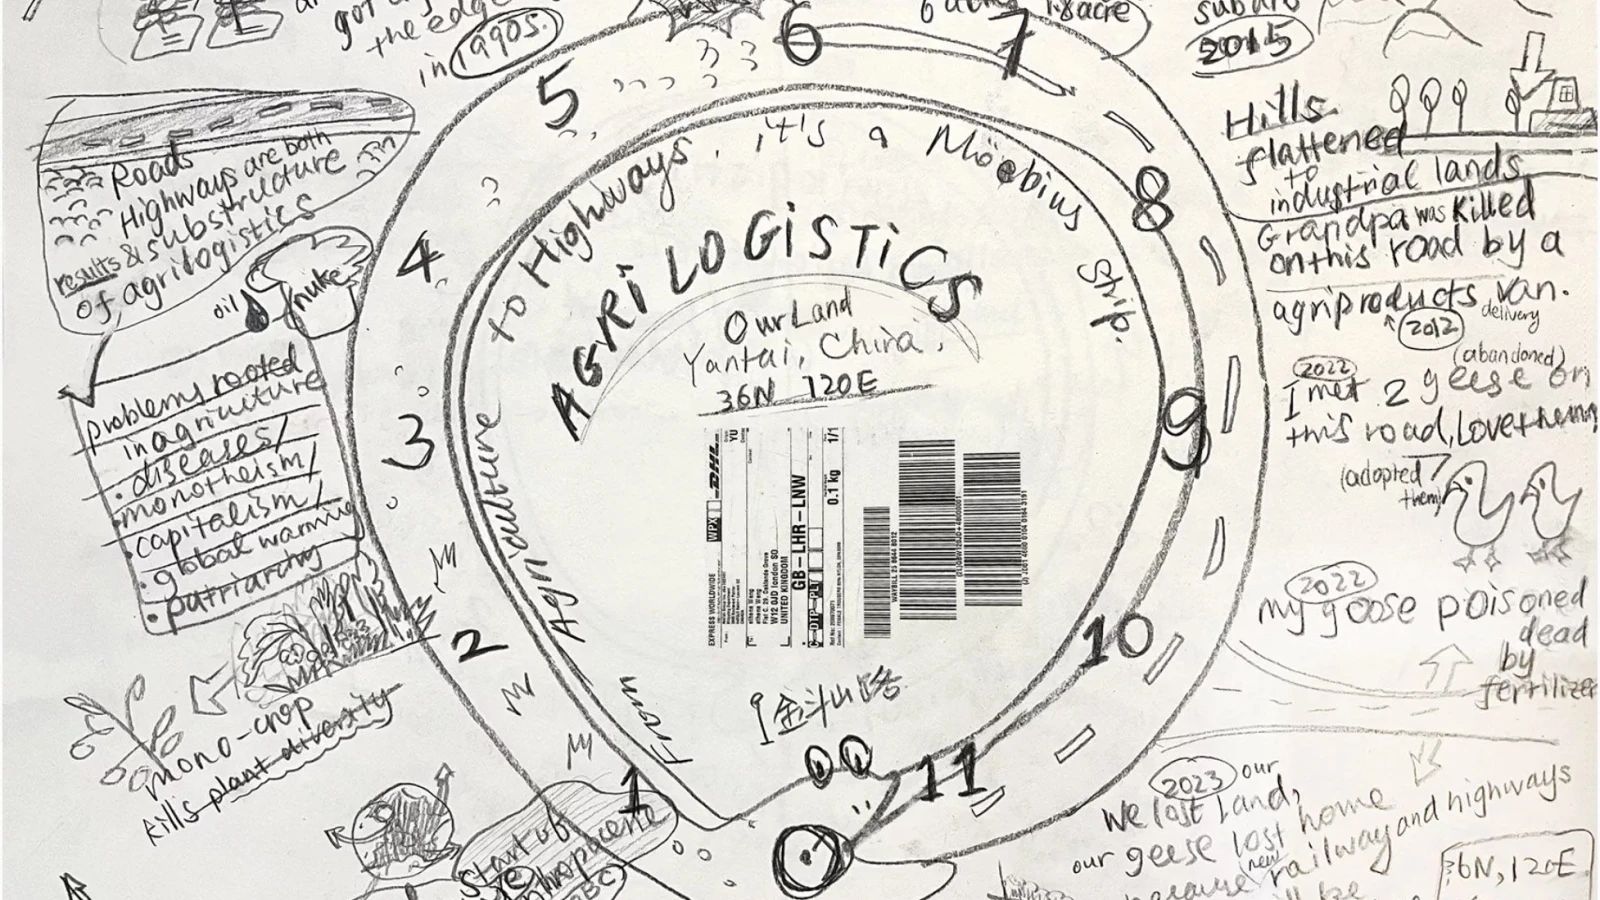 got
the edge
in 1990s.
6
7
1.8 acre
2015
5
Hills
flattened
to
industrial lands
Grandpa was killed
on this road by a
agriproducts van.
delivery
2012
Roads
Highways are both
results & substructure
of agrilogistics
oil
nuke
4
8
From Agriculture to Highways, it's a Möebius Strip.
AGRi LOGiSTiCS
Our Land
Yantai, China,
36N 120E
problems rooted
in agriculture
• diseases/
• monotheism/
• capitalism/
• global warming
• patriarchy
3
9
2022
(abandoned)
I met 2 geese on
this road, Love them
(adopted
them)
DHL
WPX
EXPRESS WORLDWIDE
W12 0JD london SO
UNITED KINGDOM
GB-LHR-LNW
0.1 kg
1/1
2022
my goose poisoned
dead
by
fertilizer
2
10
金斗山路
mono-crop
kills plant diversity
1
11
start of
2023
We lost our Land,
our geese lost home
because new railway and highways
36N, 120E